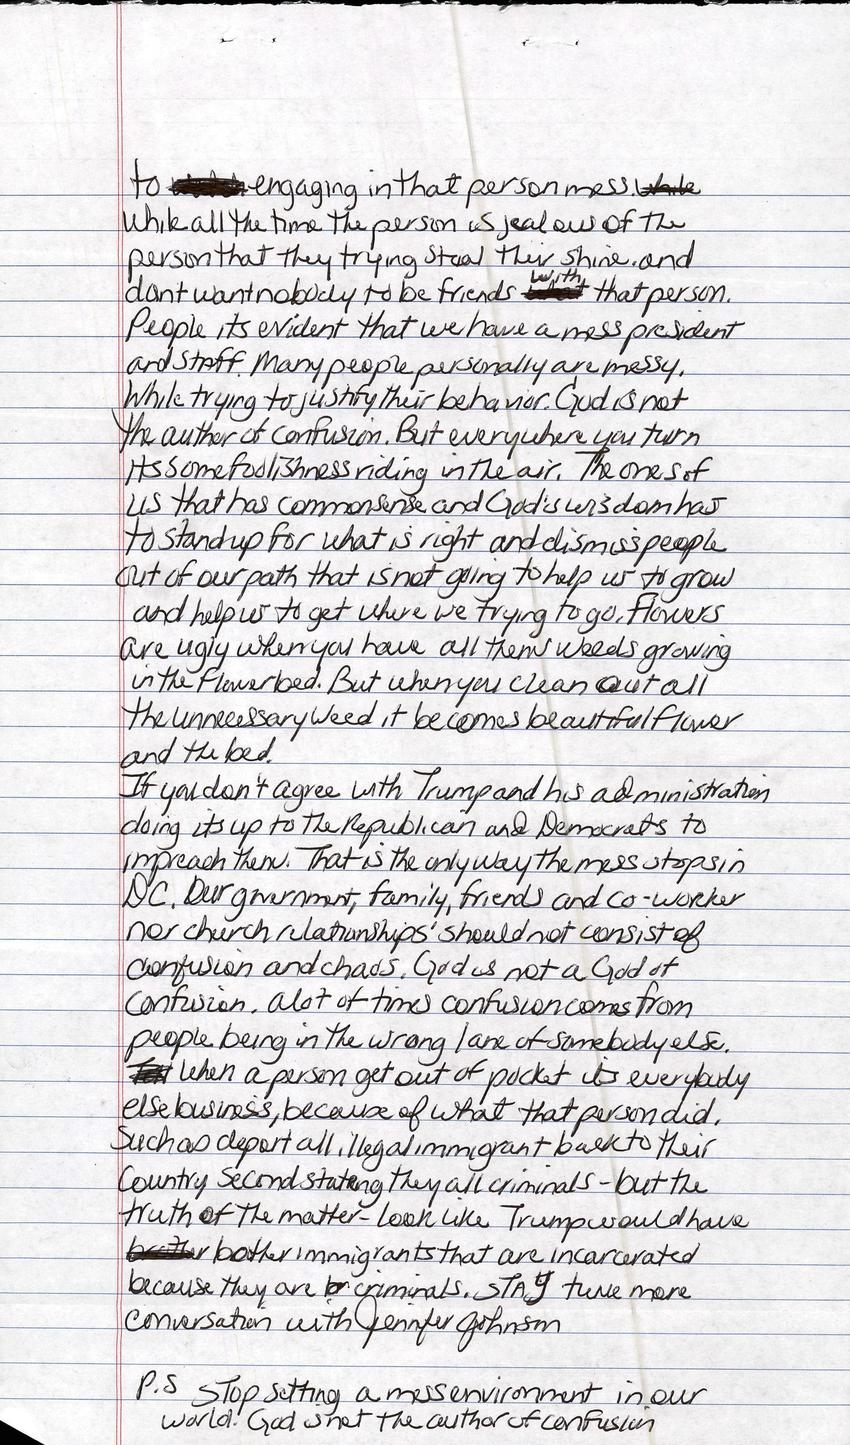 to engaging in that person mess. while
While all the time the person is jealous of the
person that they trying steal their shine. and
dont want nobody to be friends with that person.
People its evident that we have a mess president
and staff. Many people personally are messy.
While trying to justify their behavior. God is not
the author of confusion. But everywhere you turn
its some foolishness riding in the air. The ones of
us that has commonsense and God's wisdom has
to stand up for what is right and dismiss people
out of our path that is not going to help us to grow
and help us to get where we trying to go. Flowers
are ugly when you have all them weeds growing
in the flowerbed. But when you clean out all
the unnecessary weed it becomes beautiful flower
and the bed.
If you don't agree with Trump and his administration
doing its up to the Republican and Democrats to
impreach them. That is the only way the mess stops in
DC. Our government, family, friends and co-worker
nor church relationships' should not consist of
confusion and chaos. God is not a God of
Confusion. a lot of times confusion comes from
people being in the wrong lane of somebody else.
When a person get out of pocket its everybody
else business, because of what that person did.
Such as deport all illegal immigrant back to their
Country second stateng they all criminals - but the
truth of the matter - look like Trump would have
bother immigrants that are incarcerated
because they are criminals. STAY tune more
conversation with Jennifer Johnson
P.S Stop setting a mess environment in our
world! God is not the author of confusion